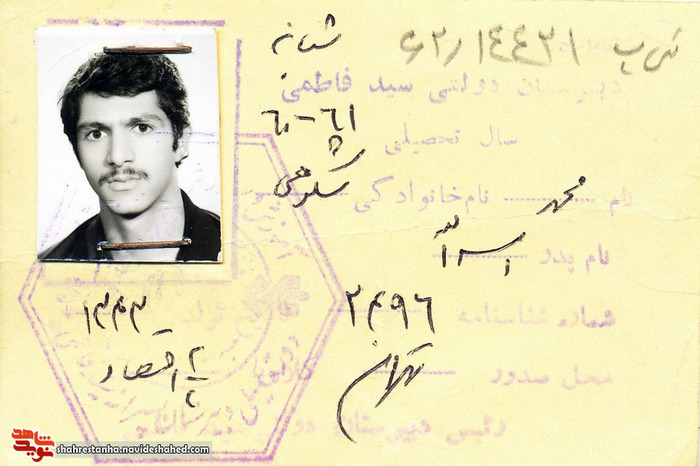 ۶۲/۱۴۴۲۱
دبیرستان دولتی سید فاطمی شبانه
سال تحصیلی ۶۱-۶۰
نام محمد نام خانوادگی شکوهی
نام پدر اسداله
شماره شناسنامه ۲۴۹۶ تولد ۱۳۴۳
محل صدور تهران کلاس ۲ اقتصاد
رئیس دبیرستان
نوید شاهد
shahrestanha.navideshahed.com